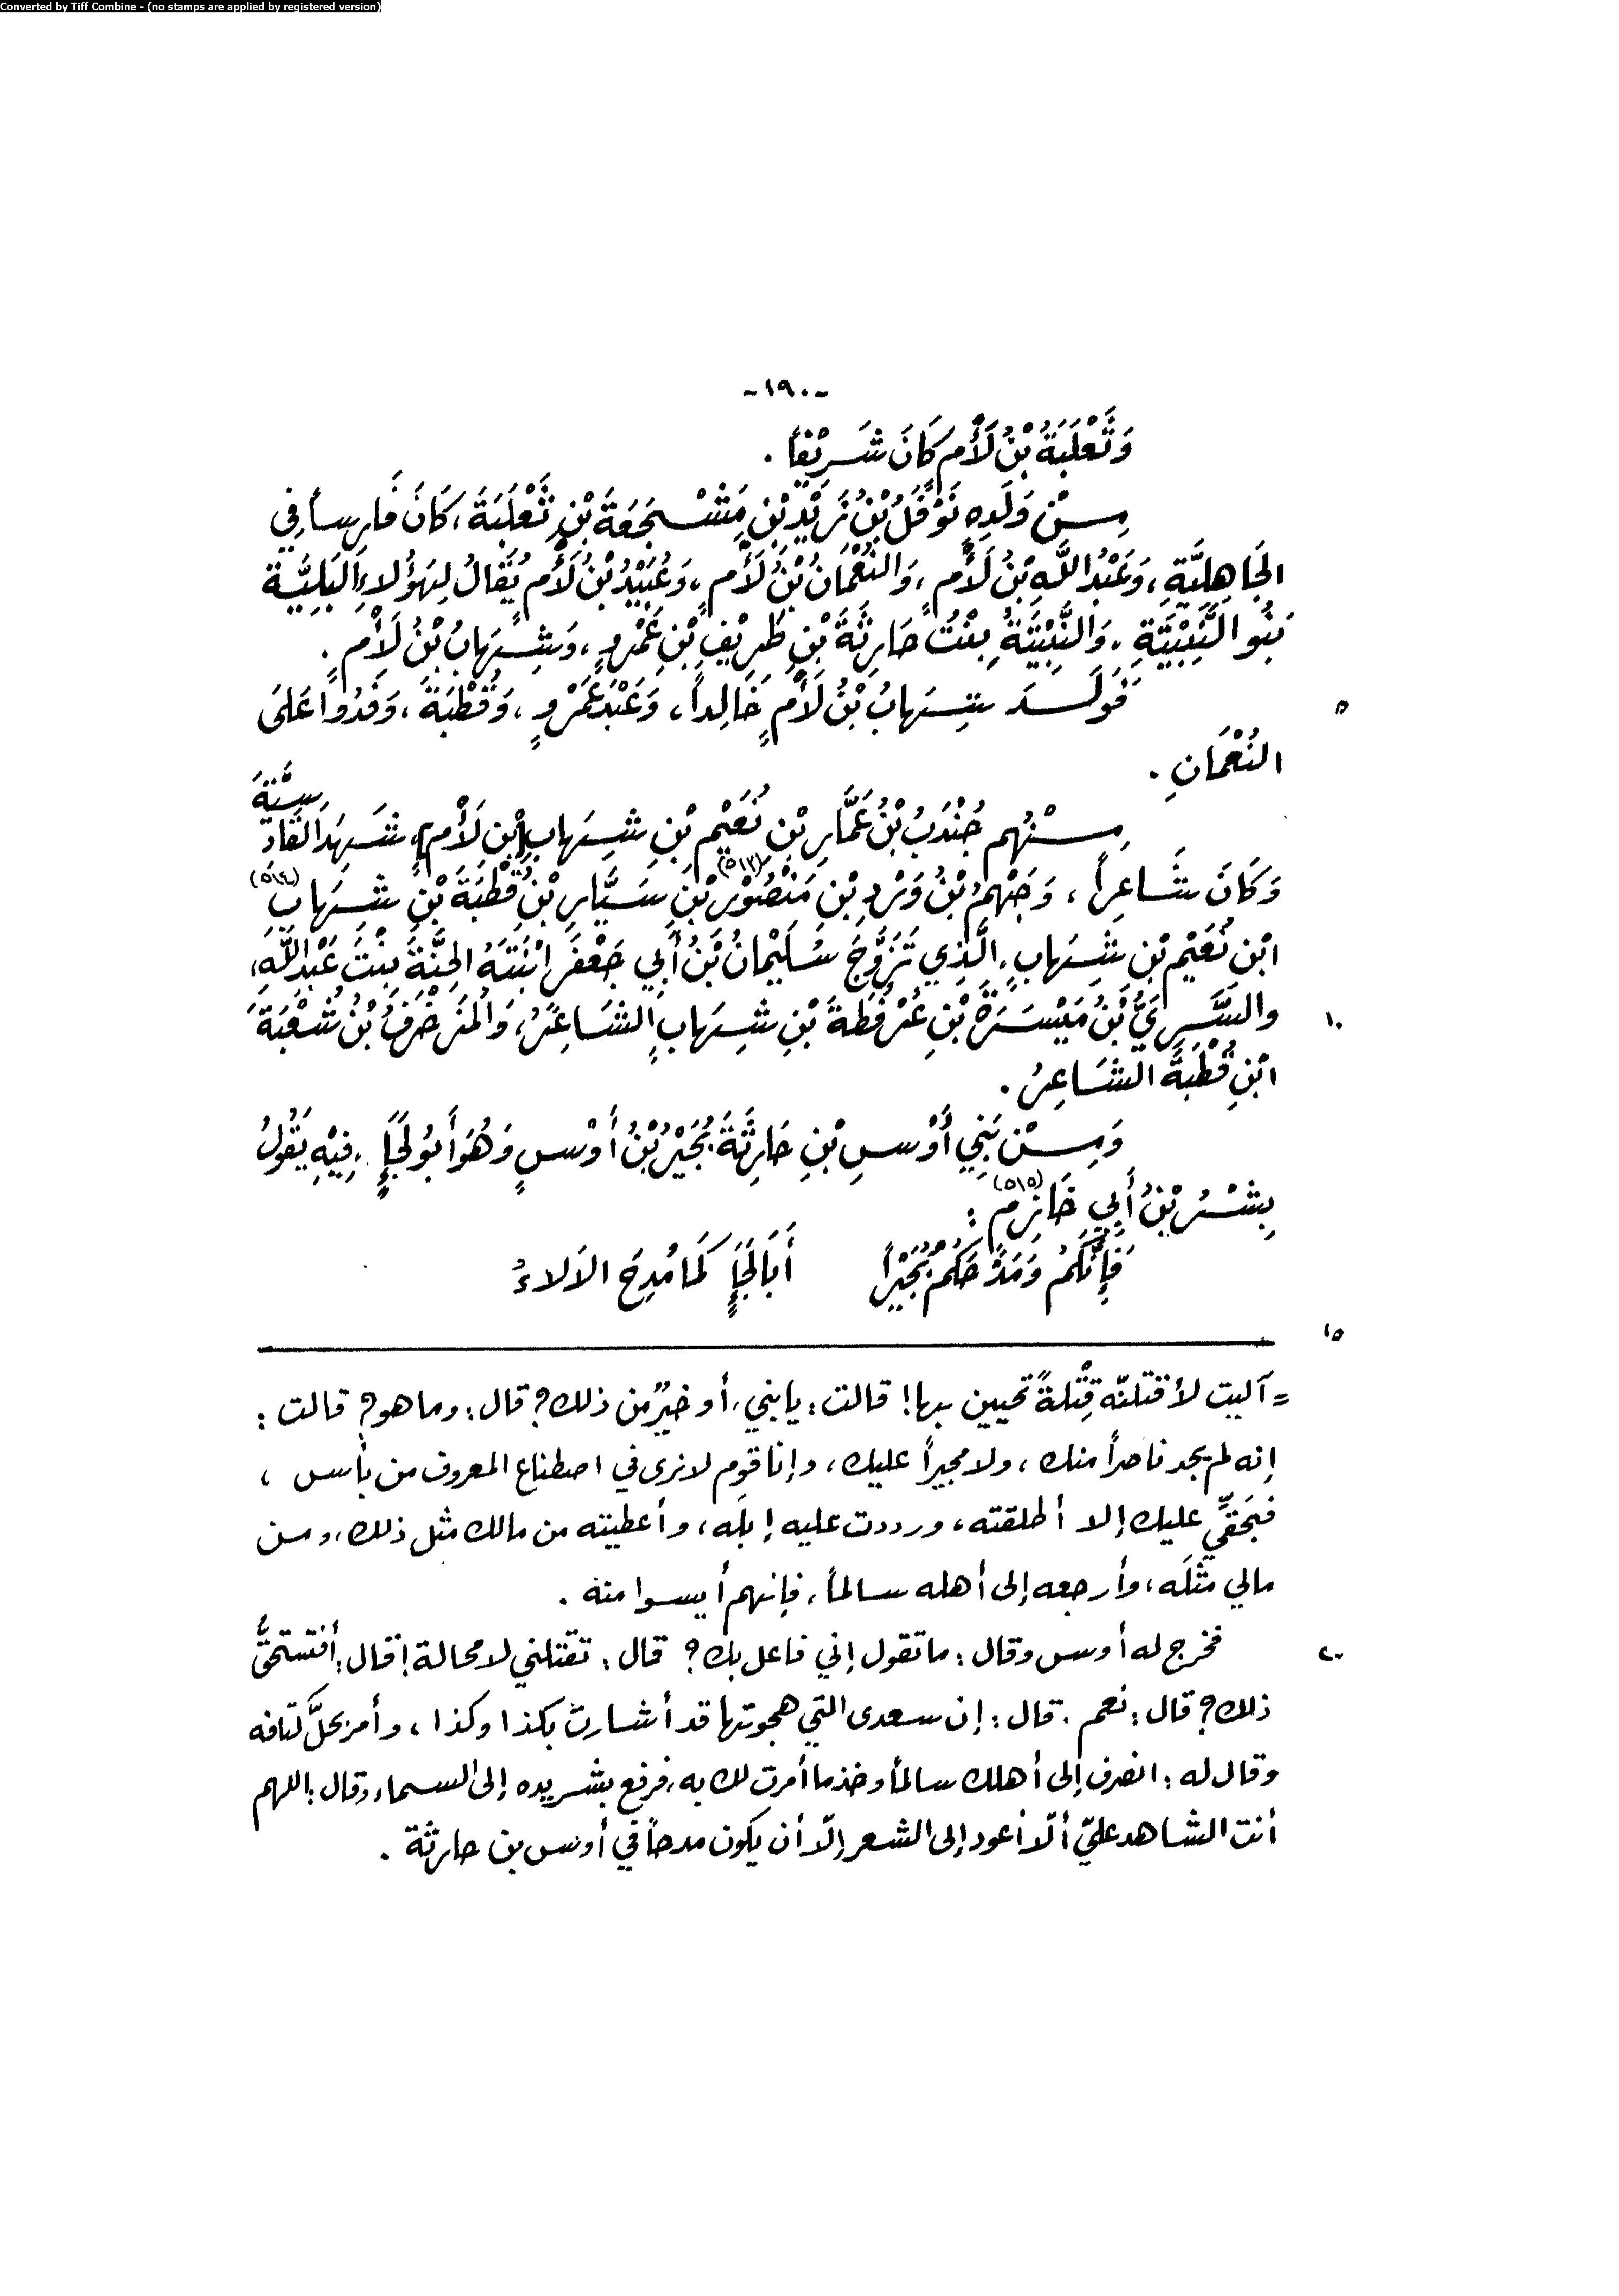 Converted by Tiff Combine - (no stamps are applied by registered version)
-١٩٠-
وَثَعْلَبَةُ بْنُ لَأْمٍ كَانَ شَرِيْفَاً .
مِنْ وَلَدِهِ نَوْفَلُ بْنُ زَيْدِ بْنِ مَشْجَعَةَ بْنِ ثَعْلَبَةَ ، كَانَ فَارِسَاً فِي
الجَاهِلِيَّةِ ، وَعَبْدُ اللَّهِ بْنُ لَأْمٍ ، وَالنُّعْمَانُ بْنُ لَأْمٍ ، وَعُبَيْدُ بْنُ لَأْمٍ يُقَالُ لِهَؤُلاءِ البَلِيَّةِ
بَنُو النَّبِيْتَةِ ، وَالنَّبِيْتَةُ بِنْتُ حَارِثَةَ بْنِ طَرِيْفِ بْنِ عَمْرٍو ، وَشِهَابُ بْنُ لَأْمٍ .
فَوَلَدَ شِهَابُ بْنُ لَأْمٍ خَالِداً ، وَعَبْدَ عَمْرٍو ، وَقُطْبَةَ ، وَفَدُوا عَلَى
٥
النُّعْمَانِ .
مِنْهُم جُنْدَبُ بْنُ عَمَّارِ بْنِ نُعَيْمِ بْنِ شِهَابِ [بْنِ لَأْمٍ] ، شَهِدَ القَادِسِيَّةَ
وَكَانَ شَاعِراً ، وَجَهْمُ بْنُ وَرْدِ بْنِ مَنْصُوْرِ (٥١٣) بْنِ سَيَّارِ بْنِ قُطْبَةَ بْنِ شِهَابِ (٥١٤)
ابْنِ نُعَيْمِ بْنِ شِهَابٍ ، الَّذِي تَزَوَّجَ سُلَيْمَانُ بْنُ أَبِي جَعْفَرٍ ابْنَتَهُ الجَنَّةَ بِنْتَ عَبْدِ اللَّهِ ،
والسَّرِيُّ بْنُ مَيْسَرَةَ بْنِ عُرْفُطَةَ بْنِ شِهَابٍ الشَّاعِرُ ، وَالْمُزَخْرَفُ بْنُ شُعْبَةَ
١٠
ابْنِ قُطْبَةَ الشَّاعِرُ .
وَمِنْ بَنِي أَوْسِ بْنِ حَارِثَةَ بُجَيْرُ بْنُ أَوْسٍ وَهُوَ أَبُو لَجَأٍ ، فِيْهِ يَقُولُ
بِشْرُ بْنُ أَبِي خَازِمٍ (٥١٥) :
فَإِنَّكُمُ وَمَدْحَكُمْ بُجَيْرَاً أَبَا لَجَأٍ كَمَا مُدِحَ الأَلاءُ
١٥
= آليت لأقتلنّه قِتْلَةً تحيين بها! قالت : يا بني ، أو خيرٌ من ذلك؟ قال : وما هو؟ قالت :
إنه لم يجد ناصراً منك ، ولا مجيراً عليك ، وإنا قوم لا نرى في اصطناع المعروف من بأس ،
فبحَقّي عليك إلا أطلقته ، ورددت عليه إبلَه ، وأعطيته من مالك مثل ذلك ، ومن
مالي مثلَه ، وأرجعه إلى أهله سالماً ، فإنهم أيسوا منه .
فخرج له أوس وقال : ما تقول إني فاعل بك؟ قال : تقتلني لا محالة! قال : أفتستحقُّ
٢٠
ذلك؟ قال : نعم . قال : إن سعدى التي هجوتها قد أشارت بكذا وكذا ، وأمر بحلِّ كتافه
وقال له : انصرف إلى أهلك سالماً وخذ ما أمرت لك به ، فرفع بشر يده إلى السماء وقال : اللهم
أنت الشاهد عليّ ألّا أعود إلى الشعر إلّا أن يكون مدحاً في أوس بن حارثة .